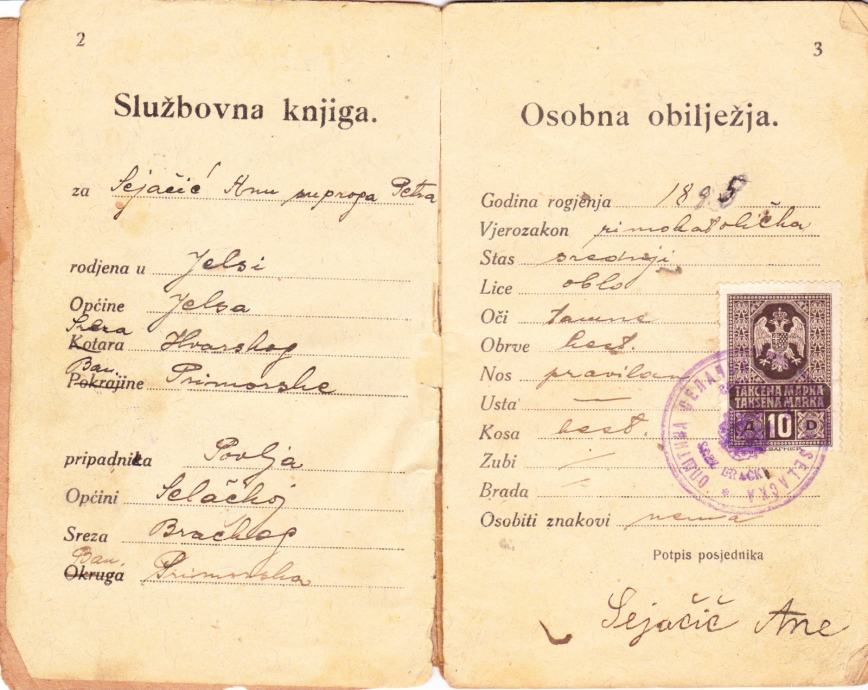 2
Službovna knjiga.
za Sejačić Anu suproga Petra
rodjena u Jelsi
Općine Jelsa
Sreza
Kotara Hvarskog
Ban.
Pokrajine Primorske
pripadnika Povlja
Općini Selačkoj
Sreza Bračkog
Ban.
Okruga Primorska
3
Osobna obilježja.
Godina rogjenja 1895
Vjerozakon rimokatolička
Stas srednji
Lice oblo
Oči tamne
Obrve kest.
Nos pravilan
Usta —
Kosa kest.
Zubi
Brada
Osobiti znakovi nema
Potpis posjednika
Sejačić Ane
ТАКСЕНА МАРКА
TAKSENA MARKA
A 10 D
ОПШТИНА СЕЛАЧ
SELAČKA